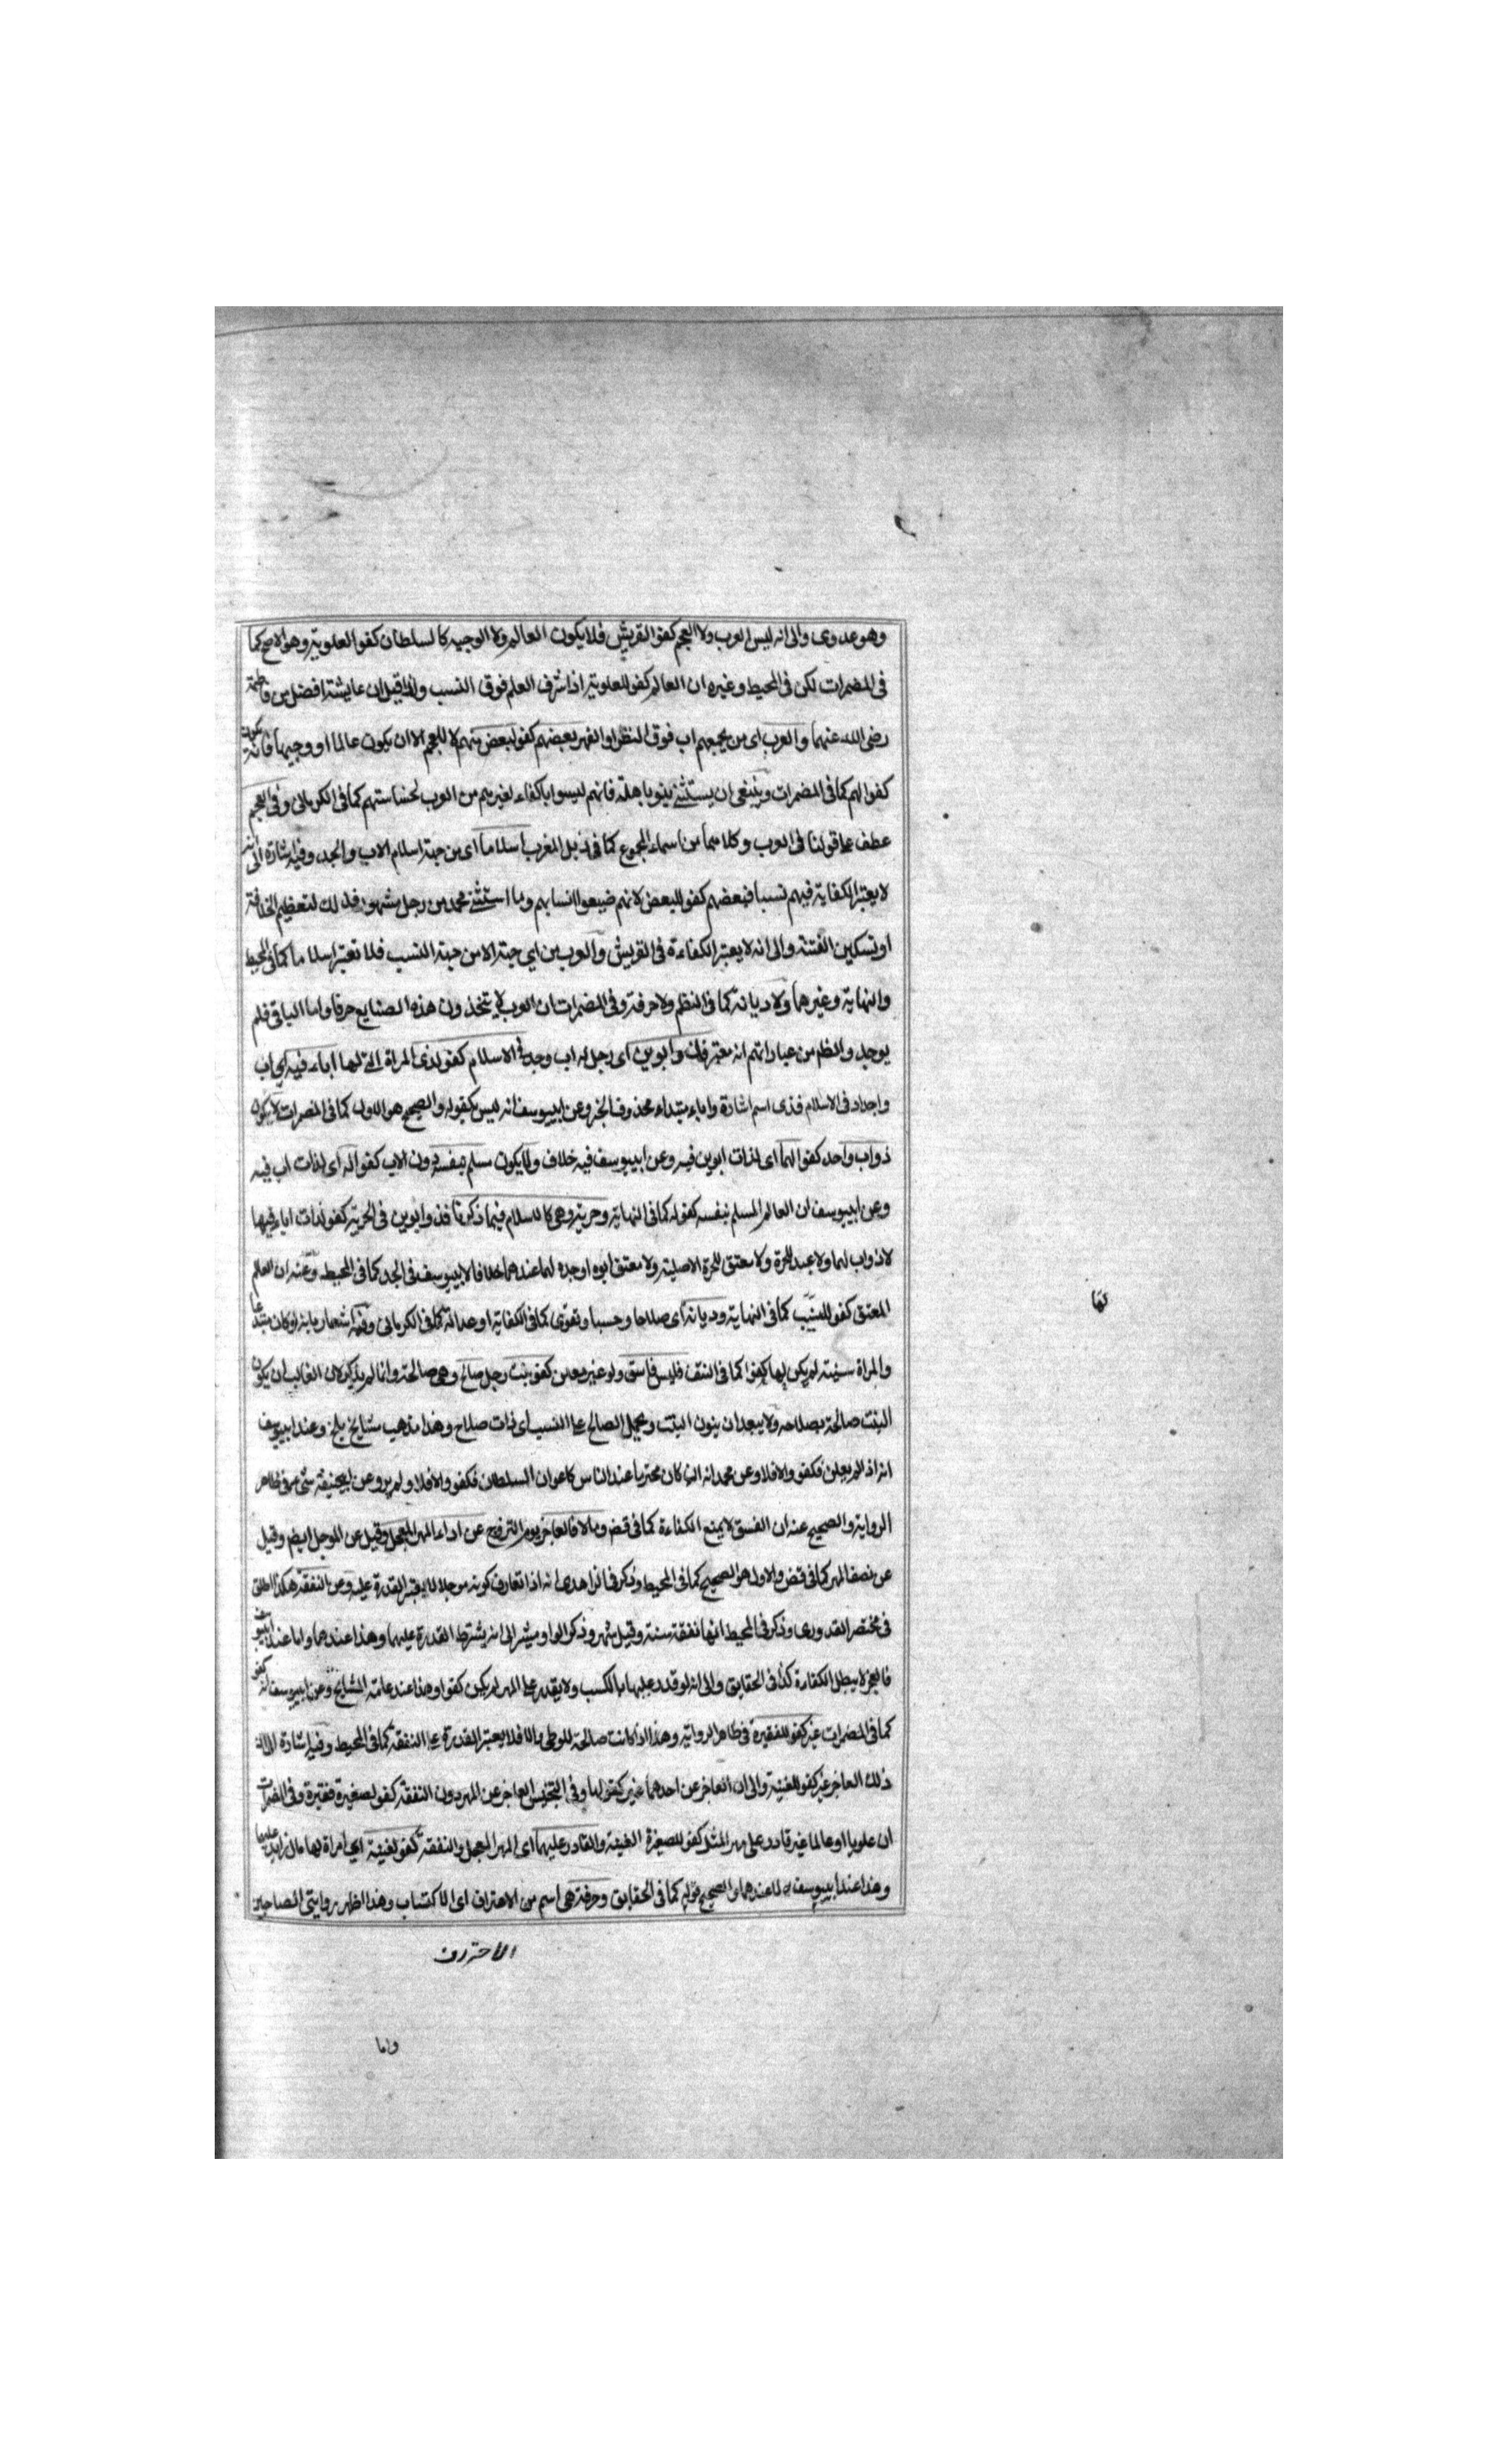 وهو عدوى والى انه ليس العرب ولا العجم كفو القريش فلا يكون العالم ولا الوجيه كالسلطان كفو العلوية وهو الاصح كما
فى المضمرات لكن فى المحيط وغيره ان العالم كفو للعلوية اذ شرف العلم فوق النسب ولذا قيل ان عايشة افضل من فاطمة
رضى الله عنهما والعرب اى من يجمعهم اب فوق النظر او الفهر بعضهم كفو لبعض منهم لا للعجم الا ان يكون عالما او وجيها فانه يكون
كفوا لهم كما فى المضمرات وينبغى ان يستثنى بنو باهلة فانهم ليسوا باكفاء لغيرهم من العرب لخساستهم كما فى الكرمانى وفى العجم
عطف على قولنا فى العرب وكلاهما من اسماء الجموع كما فى ذيل المغرب اسلاما اى من جهة اسلام الاب والجد وفيه اشارة الى انه
لا يعتبر الكفاية فيهم نسبا فبعضهم كفو للبعض لانهم ضيعوا انسابهم وما استثنى محمد من رجل مشهور فذلك لتعظيم الخلافة
او تسكين الفتنة والى انه لا يعتبر الكفاءة فى القريش والعرب من اى جهة الا من جهة النسب فلا تعتبر اسلاما كما فى المحيط
والنهاية وغيرهما ولا ديانة كما فى النظم ولا حرفة وفى المضمرات ان العرب لا يتخذون هذه الصنايع حرفا واما الباقى فلم
يوجد والظ من عباراتهم انه معتبر فذو ابوين اى رجل له اب وجد فى الاسلام كفو لذى المراة التى لها اباء فيه اى اب
واجداد فى الاسلام فذى اسم اشارة واباء مبتداء محذوف الخبر وعن ابيوسف انه ليس بكفو له والصحيح هو الاول كما فى المضمرات لا يكون
ذو اب واحد كفوا لهما اى لذات ابوين فيه وعن ابيوسف فيه خلاف ولا يكون مسلم بنفسه دون الاب كفوا له اى لذات اب فيه
وعن ابيوسف ان العالم المسلم بنفسه كفو له كما فى النهاية وحرية وهى كالاسلام فيما ذكرنا فذو ابوين فى الحرية كفو لذات اباء فيها
لا ذو اب لهما ولا عبد للحرة ولا معتق للحرة الاصلية ولا معتق ابوه او جده لهما عندهما خلافا لابيوسف فى الجد كما فى المحيط وعنه ان العالم
المعتق كفو للسيب كما فى النهاية وديانة اى صلاحا وحسبا وتقوى كما فى الكفاية او عدالة كما فى الكرمانى وفيه اشعار بانه لو كان مبتدعا
والمراة سنية لم يكن لها كفوا كما فى النتف فليس فاسق ولو غير معلن كفو بنت رجل صالح وهى صالحة وانما لم يذكر لان الغالب ان يكون
البنت صالحة بصلاحه ولا يبعد ان ينون البنت ويحمل الصالح على النسب اى ذات صلاح وهذا مذهب مشايخ بلخ وعند ابيوسف
انه اذا لم يعلن فكفو والا فلا وعن محمد انه ان كان محترما عند الناس كاعوان السلطان فكفو والا فلا ولم يرو عن ابيحنيفة شئ فى ظاهر
الرواية والصحيح عنه ان الفسق لا يمنع الكفاءة كما فى قض ومالا فالعاجز يوم التزوج عن اداء المهر المعجل وقيل عن المؤجل ايضا وقيل
عن نصف المهر كما فى قض والاول هو الصحيح كما فى المحيط وذكر فى الزاهدى انه اذا تعارف كونه مؤجلا لا يعتبر القدرة عليه وعن النفقة هكذا اطلق
فى مختصر القدورى وذكر فى المحيط انها نفقة سنة وقيل شهر وذكر الواو مشير الى انه يشترط القدرة عليهما وهذا عندهما واما عند ابيوسف
فالعجز لا يبطل الكفاءة كذا فى الحقايق والى انه لو قدر عليها بالكسب ولا يقدر على المهر لم يكن كفوا وهذا عند عامة المشايخ وعن ابيوسف انه كفو
كما فى المضمرات غير كفو للفقيرة فى ظاهر الرواية وهذا اذا كانت صالحة للوطى والا فلا يعتبر القدرة على النفقة كما فى المحيط وفيه اشارة الى ان
ذلك العاجز غير كفو للغنية والى ان العاجز عن احدهما غير كفو لها وفى التجنيس العاجز عن المهر دون النفقة كفو لصغيرة فقيرة وفى المضمرات
ان علويا او عالما غير قادر على مهر المثل كفو للصغيرة الغنية والقادر عليهما اى المهر المعجل والنفقة كفو لغنية اى امراة لها مال زايد عليهما
وهذا عند ابيوسف لا عندهما والصحيح قوله كما فى الحقايق وحرفة هى اسم من الاحتراف اى الاكتساب وهذا اظهر روايتى الصاحبين
واما
لها